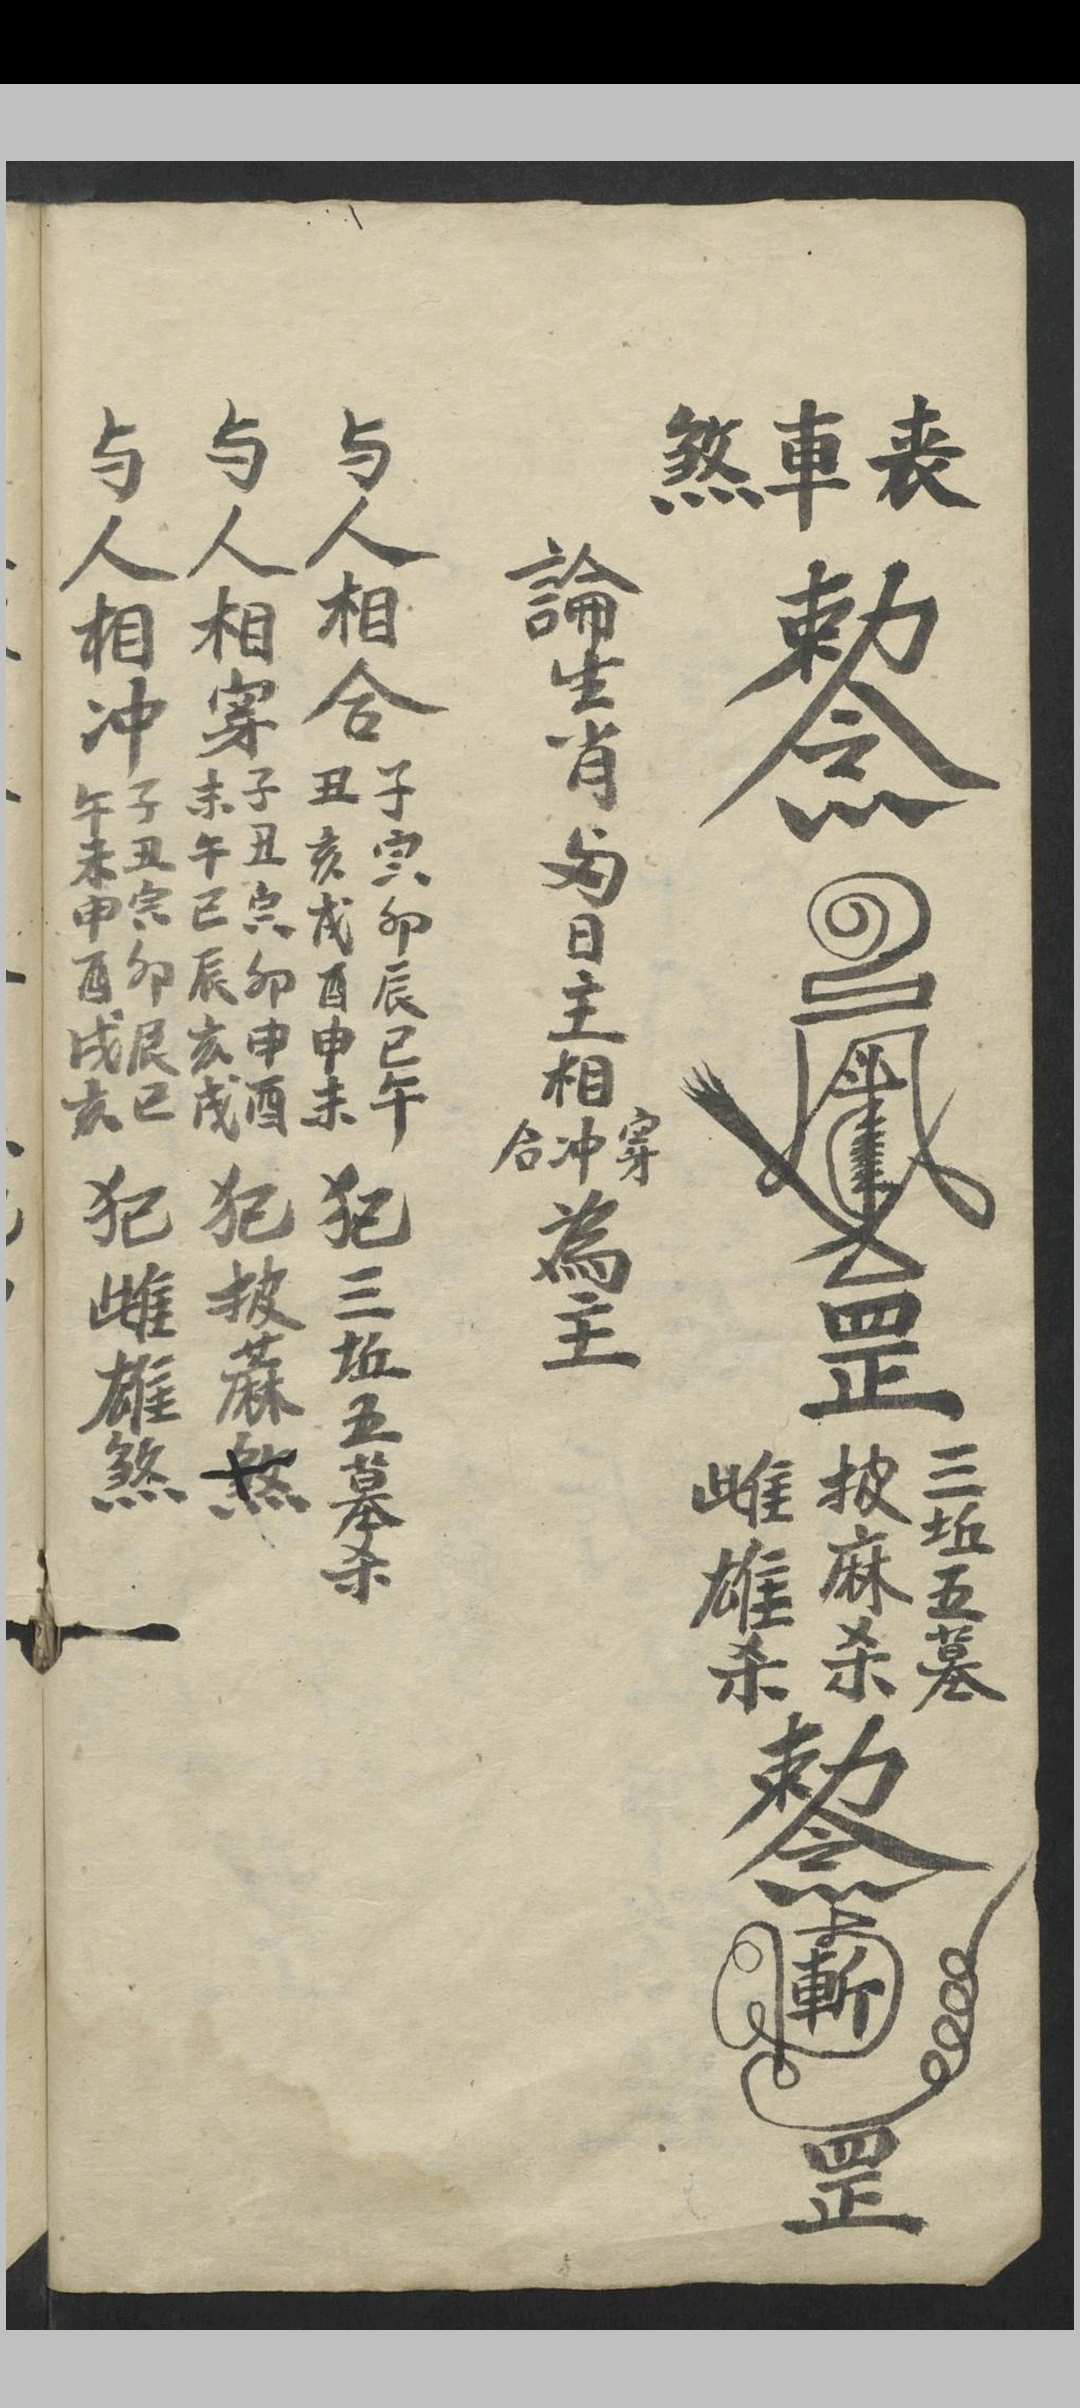 丧車煞
勅令
罡
三坵五墓
披麻杀
雌雄杀
勅令
斬
罡
論生肖与日主相穿冲合為主
与人相合
子寅卯辰巳午
丑亥戌酉申未
犯三坵五墓杀
与人相穿
子丑寅卯申酉
未午巳辰亥戌
犯披蔴煞
与人相冲
子丑寅卯辰巳
午未申酉戌亥
犯雌雄煞